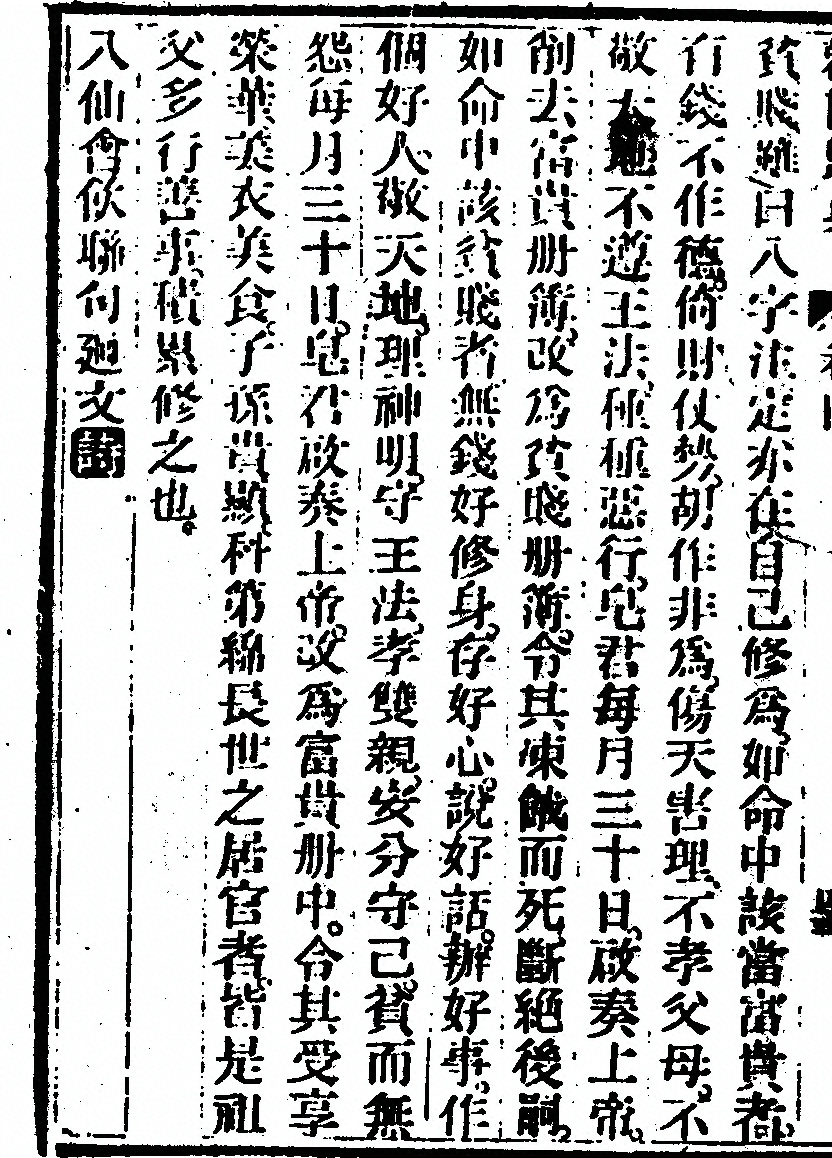 貧賤雖曰八字註定亦在自己修爲如命中該當富貴者
有錢不作德倚財仗勢胡作非爲傷天害理不孝父母不
敬天地不遵王法種種惡行皂君每月三十日啟奏上帝
削去富貴册簿改爲貧賤册簿令其凍餓而死斷絕後嗣
如命中該貧賤者無錢好修身存好心說好話辦好事作
個好人敬天地理神明守王法孝雙親安分守己貧而無
怨每月三十日皂君啟奏上帝改爲富貴册中令其受享
榮華美衣美食子孫貴顯科第綿長世之居官者皆是祖
父多行善事積累修之也
八仙會飲聯句廻文詩